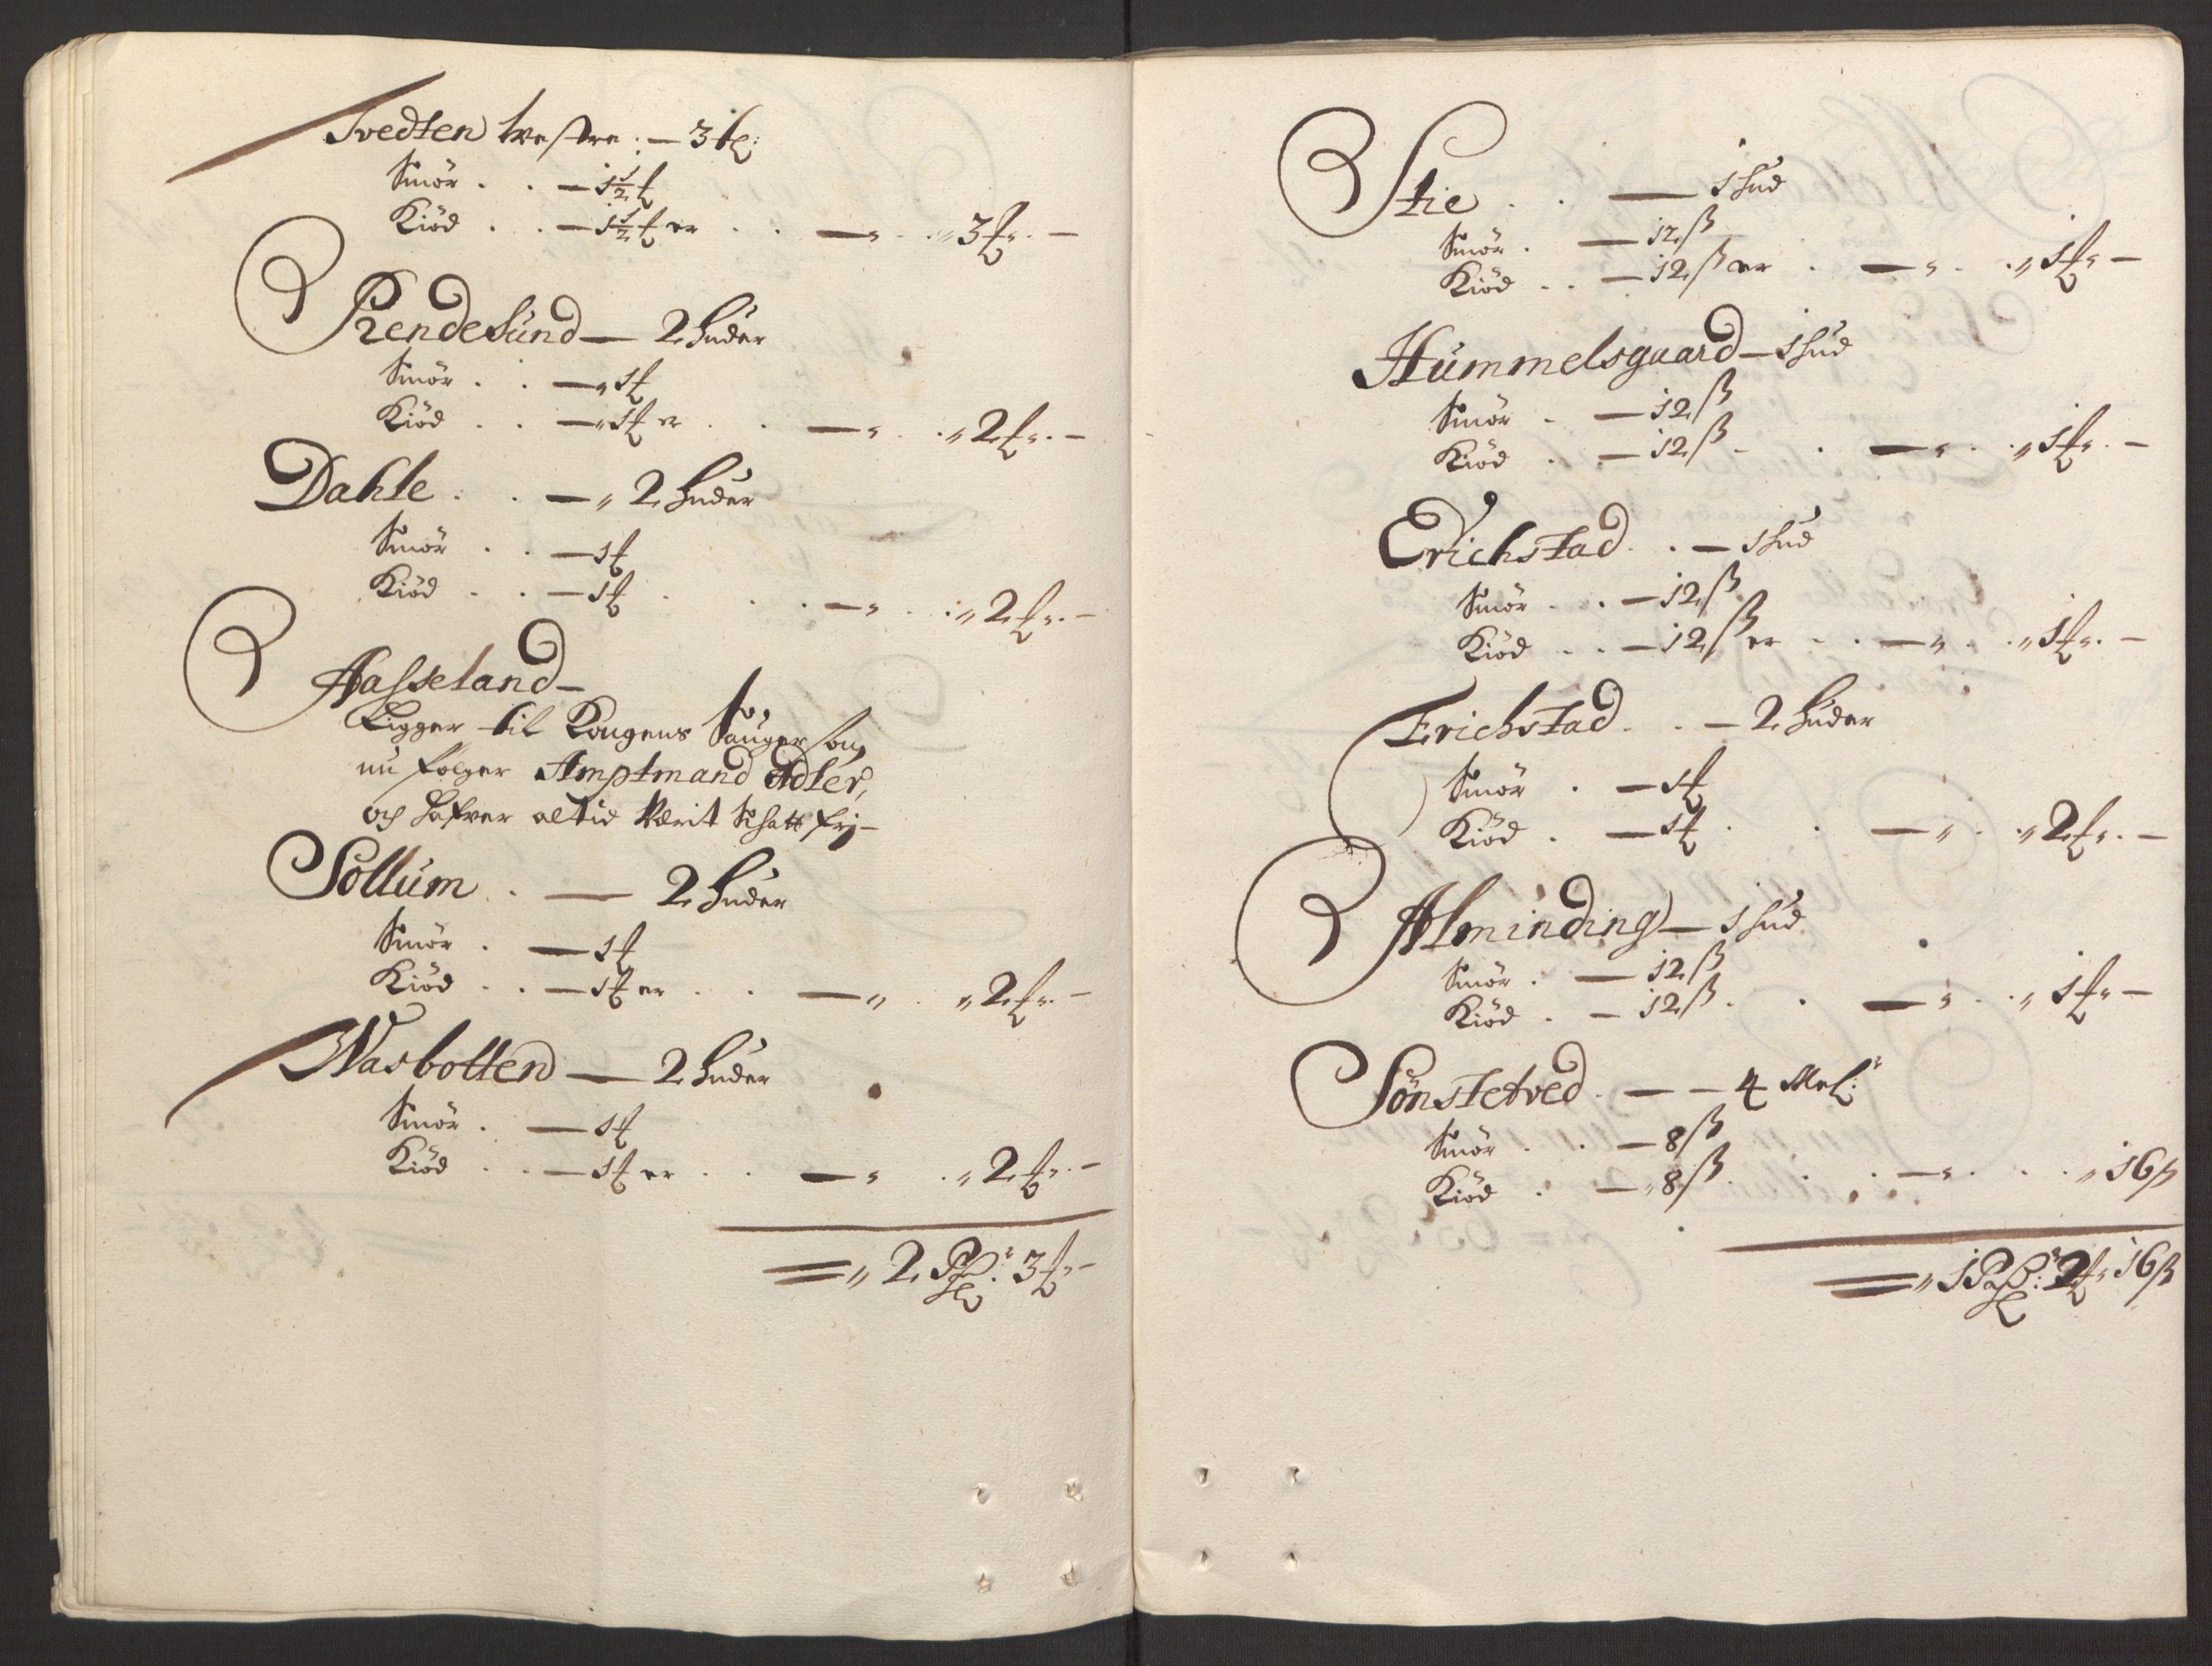 Tvedten westre: — 3 bl:
Smör . . — 1½ ℔
Kiöd . . — 1½ ℔ er . . — „ . . „ 3 ℔ „ . —
Rendesund — 2 Huder
Smör . . — „ 1 ℔
Kiöd . . — „ 1 ℔ er . . — „ . . „ 2 ℔ „ . —
Dahle . . — „ 2 Huder
Smör . . — 1 ℔
Kiöd . . — 1 ℔ . . . — „ . . „ 2 ℔ „ . —
Aasseland —
Ligger til Kongens Sauger som
nu følger Amptmand Adler,
och hafver altid Værit Schatt frj —
Sollum . — 2 Huder
Smör . — 1 ℔
Kiöd . . — 1 ℔ er . . — „ . „ 2 ℔ „ —
Wasbotten — 2 Huder
Smör . — 1 ℔
Kiöd . . — 1 ℔ er . . — „ . „ 2 ℔ „ . —
„ 2 : 3 ℔ „ —
Stie . . — 1 Hud
Smör . — 12 ß
Kiöd . . — 12 ß er . — „ . . „ 1 ℔ „ —
Hummelsgaard — 1 Hud
Smör . — 12 ß
Kiöd . — 12 ß — . — „ . . „ 1 ℔ „ . —
Erichstad . . — 1 Hud
Smör . . — 12 ß
Kiöd . . — 12 ß er . . — „ . . „ 1 ℔ „ . —
Erichstad . . — 2 Huder
Smör . — 1 ℔
Kiöd . — 1 ℔ . . — „ . . „ 2 ℔ „ . —
Alminding — 1 Hud
Smör . — 12 ß
Kiöd . — 12 ß . . — „ . . „ 1 ℔ „ —
Sönstetved . — — 4 Mel:
Smör . . — 8 ß
Kiöd . — „ 8 ß . . . — „ . . . „ 16 ß
„ 1 : 2 ℔ „ 16 ß